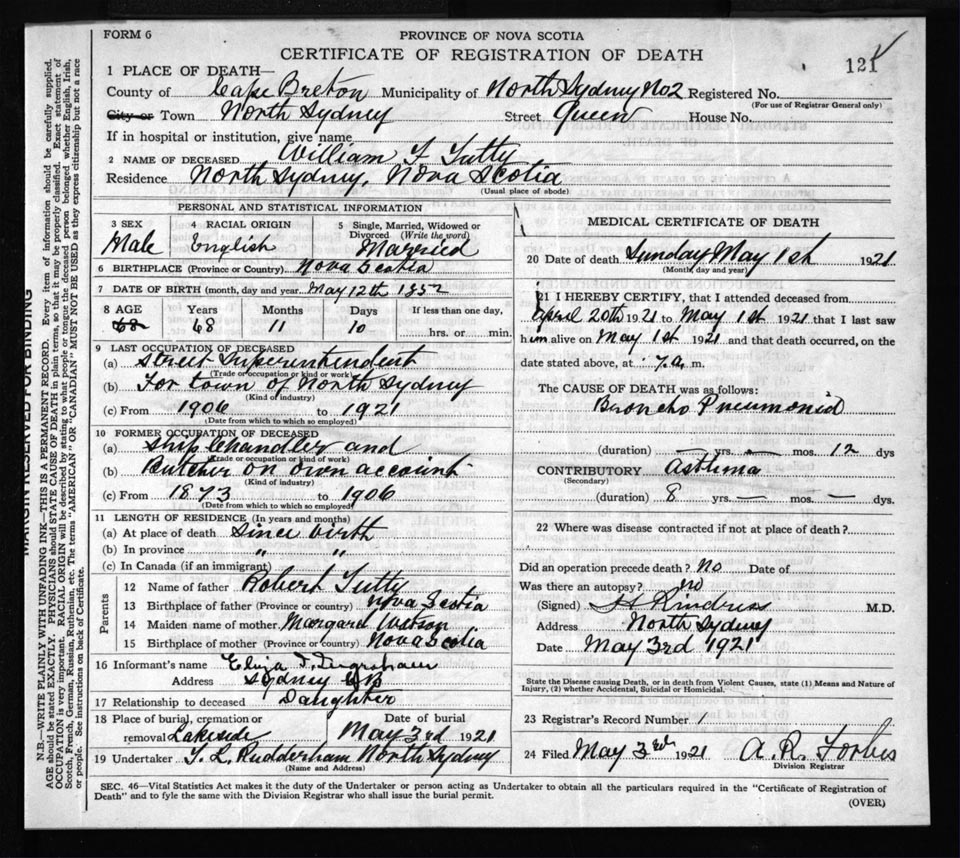 FORM 6
PROVINCE OF NOVA SCOTIA
CERTIFICATE OF REGISTRATION OF DEATH
121
1 PLACE OF DEATH—
County of Cape Breton Municipality of North Sydney No2 Registered No.
(For use of Registrar General only)
City or Town North Sydney Street Queen House No.
If in hospital or institution, give name
2 NAME OF DECEASED William F Tutty
Residence North Sydney, Nova Scotia
(Usual place of abode)
PERSONAL AND STATISTICAL INFORMATION
3 SEX Male
4 RACIAL ORIGIN English
5 Single, Married, Widowed or Divorced (Write the word) Married
6 BIRTHPLACE (Province or Country) Nova Scotia
7 DATE OF BIRTH (month, day and year May 12th 1852
8 AGE Years Months Days If less than one day,
68 68 11 10 hrs. or min.
9 LAST OCCUPATION OF DECEASED
(a) Street Superintendent
(Trade or occupation or kind of work)
(b) For town of North Sydney
(Kind of industry)
(c) From 1906 to 1921
(Date from which to which so employed)
10 FORMER OCCUPATION OF DECEASED
(a) Ship Chandler and
(Trade or occupation or kind of work)
(b) Butcher on own account
(Kind of industry)
(c) From 1873 to 1906
(Date from which to which so employed)
11 LENGTH OF RESIDENCE (In years and months)
(a) At place of death Since birth
(b) In province " "
(c) In Canada (if an immigrant)
Parents
12 Name of father Robert Tutty
13 Birthplace of father (Province or country) Nova Scotia
14 Maiden name of mother Margaret
15 Birthplace of mother (Province or country) Nova Scotia
16 Informant's name Ingraham
Address Sydney
17 Relationship to deceased Daughter
18 Place of burial, cremation or removal Lakeside
Date of burial May 3rd 1921
19 Undertaker T. L. Rudderham North Sydney
(Name and Address)
MEDICAL CERTIFICATE OF DEATH
20 Date of death Sunday May 1st 1921
(Month, day and year)
21 I HEREBY CERTIFY, that I attended deceased from
April 20th 1921 to May 1st 1921 that I last saw
him alive on May 1st 1921 and that death occurred, on the
date stated above, at 7.a. m.
The CAUSE OF DEATH was as follows:
Broncho Pneumonia
(duration) — yrs. — mos. 12 dys
CONTRIBUTORY Asthma
(Secondary)
(duration) 8 yrs. — mos. — dys.
22 Where was disease contracted if not at place of death?
Did an operation precede death? No Date of
Was there an autopsy? no
(Signed) M.D.
Address North Sydney
Date May 3rd 1921
State the Disease causing Death, or in death from Violent Causes, state (1) Means and Nature of
Injury, (2) whether Accidental, Suicidal or Homicidal.
23 Registrar's Record Number 1
24 Filed May 3rd 1921 A. R. Forbes
Division Registrar
SEC. 46—Vital Statistics Act makes it the duty of the Undertaker or person acting as Undertaker to obtain all the particulars required in the "Certificate of Registration of
Death" and to fyle the same with the Division Registrar who shall issue the burial permit.
(OVER)
MARGIN RESERVED FOR BINDING
N.B.—WRITE PLAINLY WITH UNFADING INK—THIS IS A PERMANENT RECORD. Every item of information should be carefully supplied.
AGE should be stated EXACTLY. PHYSICIANS should STATE CAUSE OF DEATH in plain terms, so that it may be properly classified. Exact statement of
OCCUPATION is very important. RACIAL ORIGIN will be described by stating to what people or tongue the deceased person belonged whether English, Irish,
Scotch, French, German, Russian, Ruthenian, etc. The terms "AMERICAN" or "CANADIAN" MUST NOT BE USED as they express citizenship but not a race
or people. See instructions on back of Certificate.